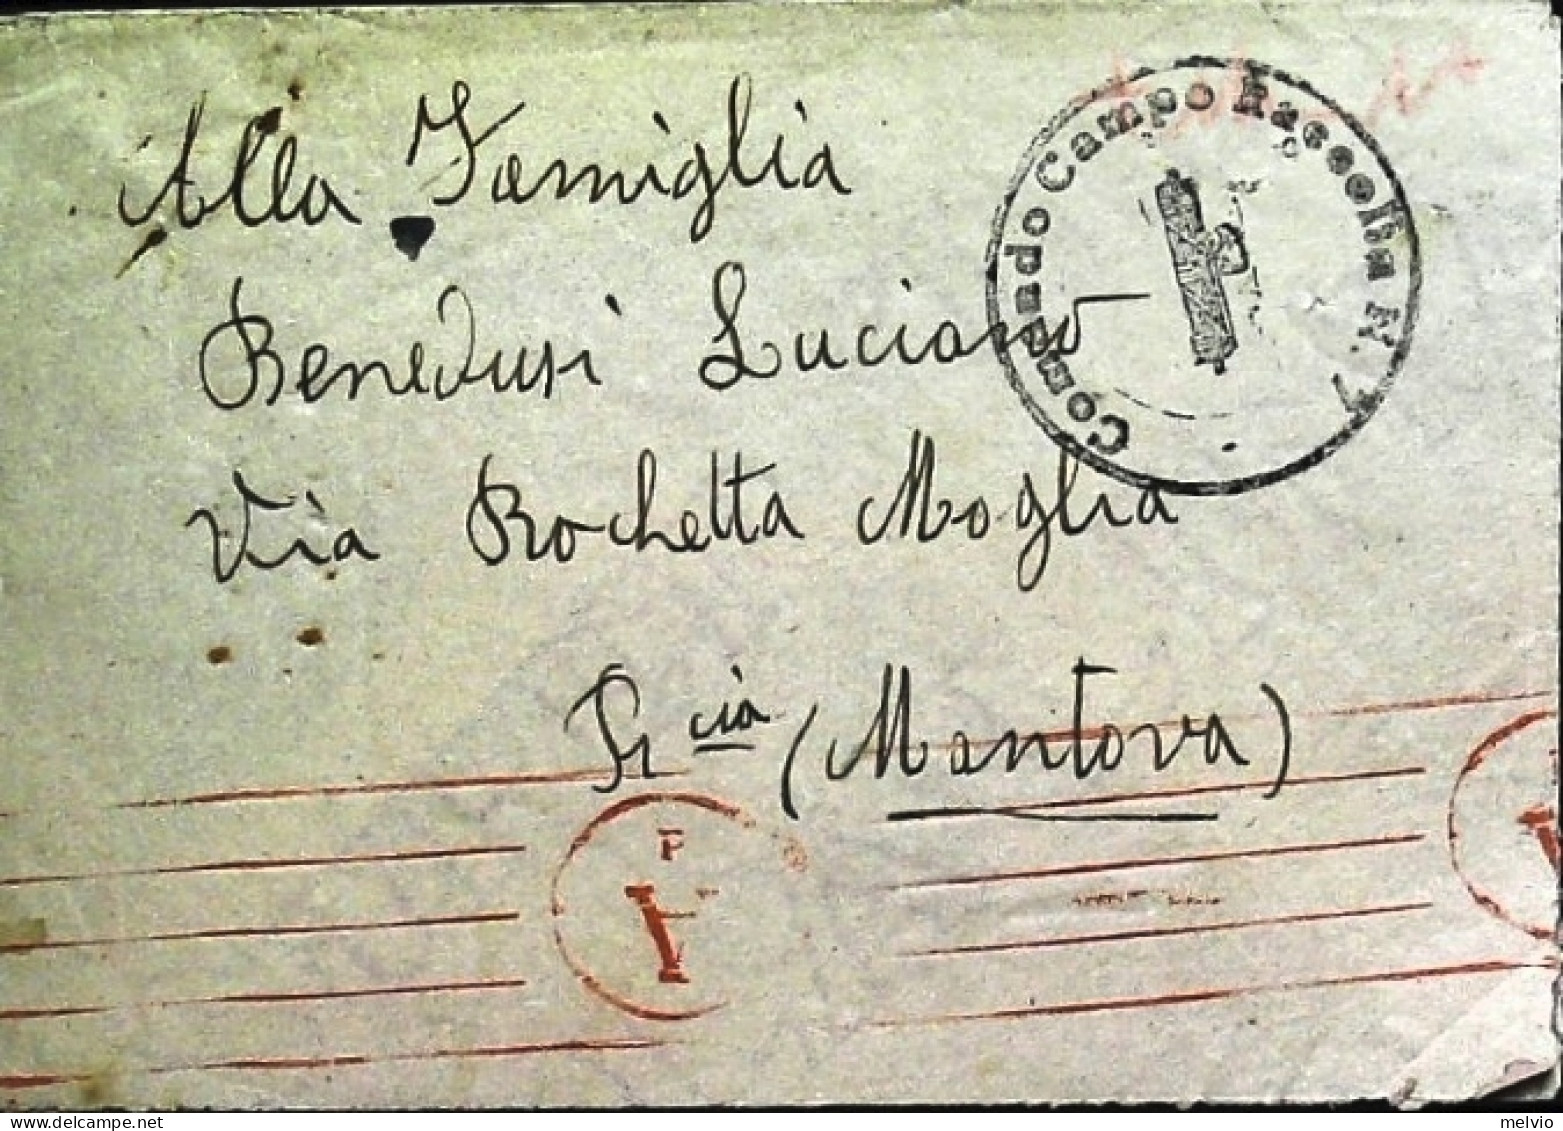 Alla Famiglia
Benedusi Luciano
Via Rochetta Moglia
Pr cia (Mantova)
Comando Campo Raccolta N. 7
P
melvio